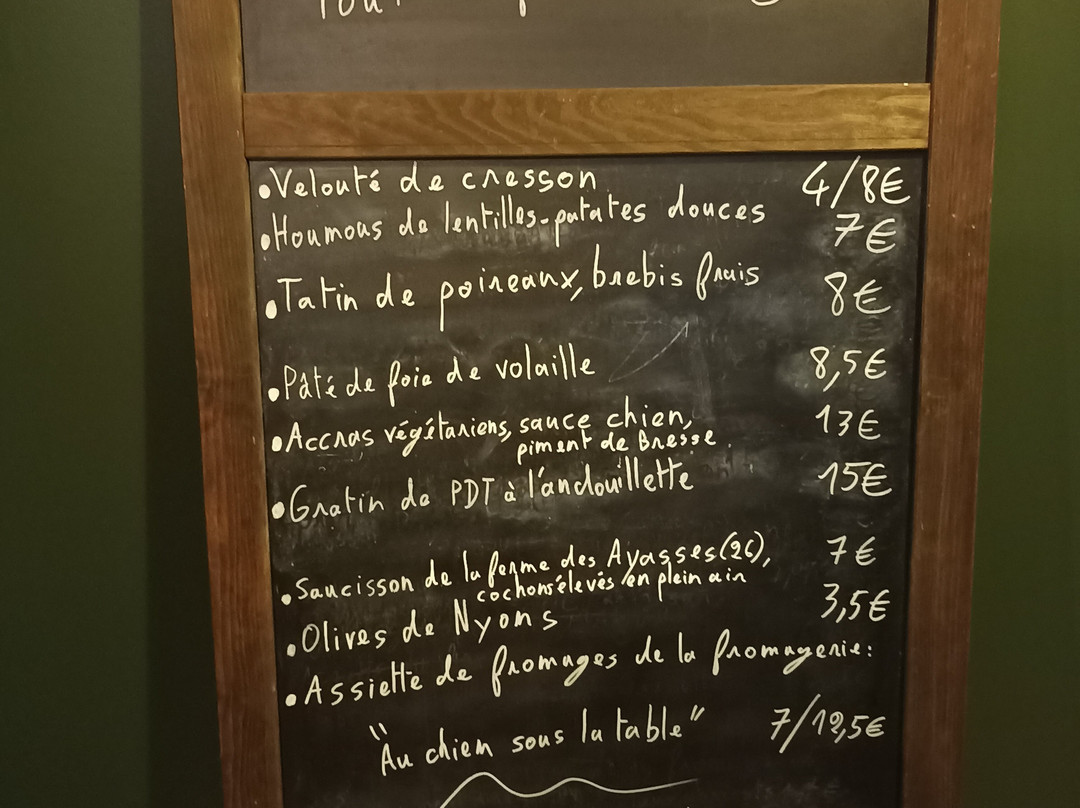 •Velouté de cresson 4/8€
•Houmous de lentilles-patates douces 7€
•Tatin de poireaux, brebis frais 8€
•Pâté de foie de volaille 8,5€
•Accras végétariens, sauce chien, 13€
piment de Bresse
•Gratin de PDT à l'andouillette 15€
•Saucisson de la ferme des Ayasses (26), 7€
cochons élevés en plein air
•Olives de Nyons 3,5€
•Assiette de fromages de la fromagerie:
"Au chien sous la table" 7/12,5€